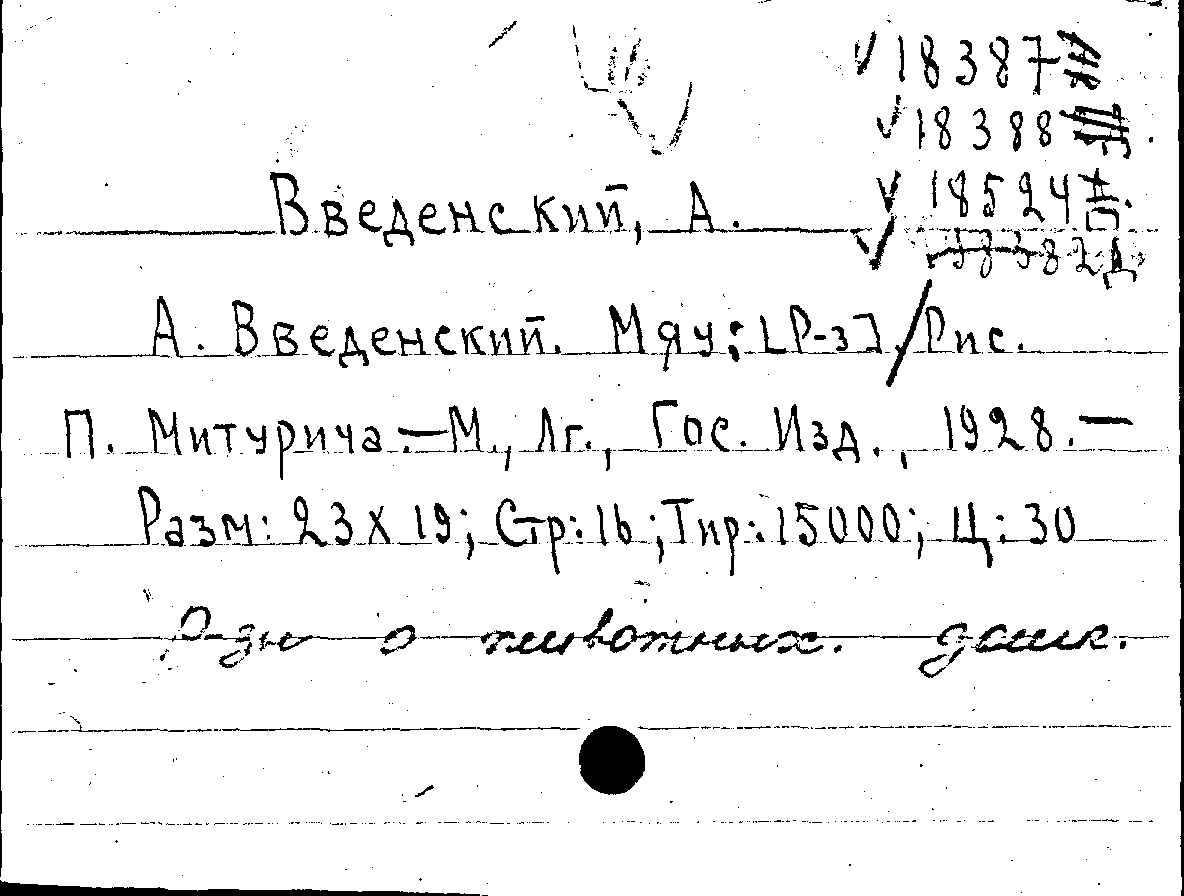 18387
18388
18524 Д.
Введенский, А.
18382 Д
А. Введенский. Мяу: [Р-з] / Рис.
П. Митурича. — М., Лг., Гос. Изд., 1928. —
Разм: 23 х 19; Стр: 16; Тир: 15000; Ц: 30
Р-зы о животных. дошк.